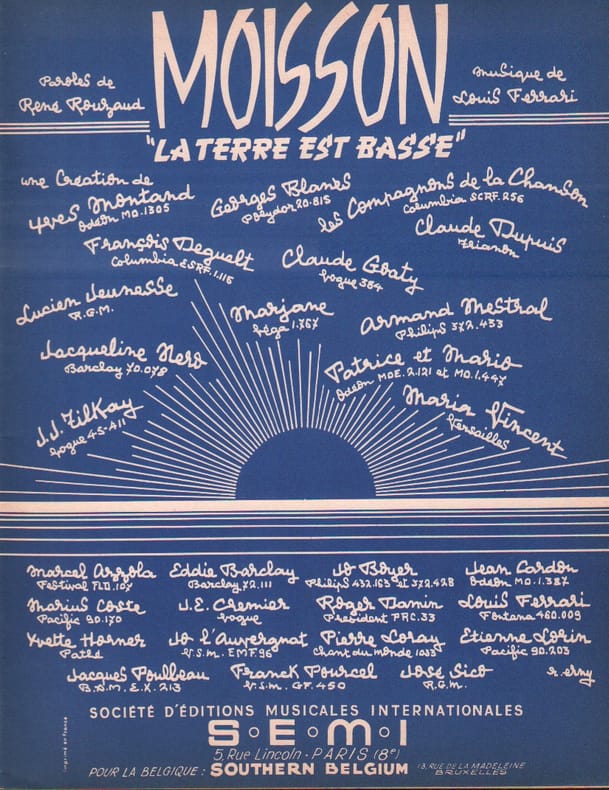 MOISSON
Paroles de
René Rouzaud
musique de
Louis Ferrari
"LA TERRE EST BASSE"
une Création de
Yves Montand
Odéon MO.1305
Georges Blanès
Polydor 20.815
les Compagnons de la Chanson
Columbia SCRF.256
François Deguelt
Columbia ESRF.1.116
Claude Goaty
Vogue 384
Claude Dupuis
Trianon
Lucien Jeunesse
R.G.M.
Marjane
Véga 1.767
Armand Mestral
Philips 372.433
Jacqueline Nero
Barclay 70.078
Patrice et Mario
Odéon MOE.2.121 et MO.1.447
J.J. Tilkay
Vogue 45-411
Maria Vincent
Versailles
Marcel Azzola
Festival FLD.107
Eddie Barclay
Barclay 72.111
Jo Boyer
Philips 432.163 et 372.428
Jean Cardon
Odéon MO.1.387
Marius Coste
Pacific 90.170
J.E. Cremier
Vogue
Roger Damin
Président PRC.33
Louis Ferrari
Fontana 460.009
Yvette Horner
Pathé
Jo l'Auvergnat
V.S.M. EMF.96
Pierre Loray
Chant du monde 1033
Etienne Lorin
Pacific 90.203
Jacques Poulbeau
B.A.M. EX.213
Franck Pourcel
V.S.M. GF.450
José Sico
R.G.M.
r.erny
imprimé en france
SOCIÉTÉ D'ÉDITIONS MUSICALES INTERNATIONALES
S.E.M.I
5, Rue Lincoln - PARIS (8e)
POUR LA BELGIQUE : SOUTHERN BELGIUM
13, RUE DE LA MADELEINE
BRUXELLES